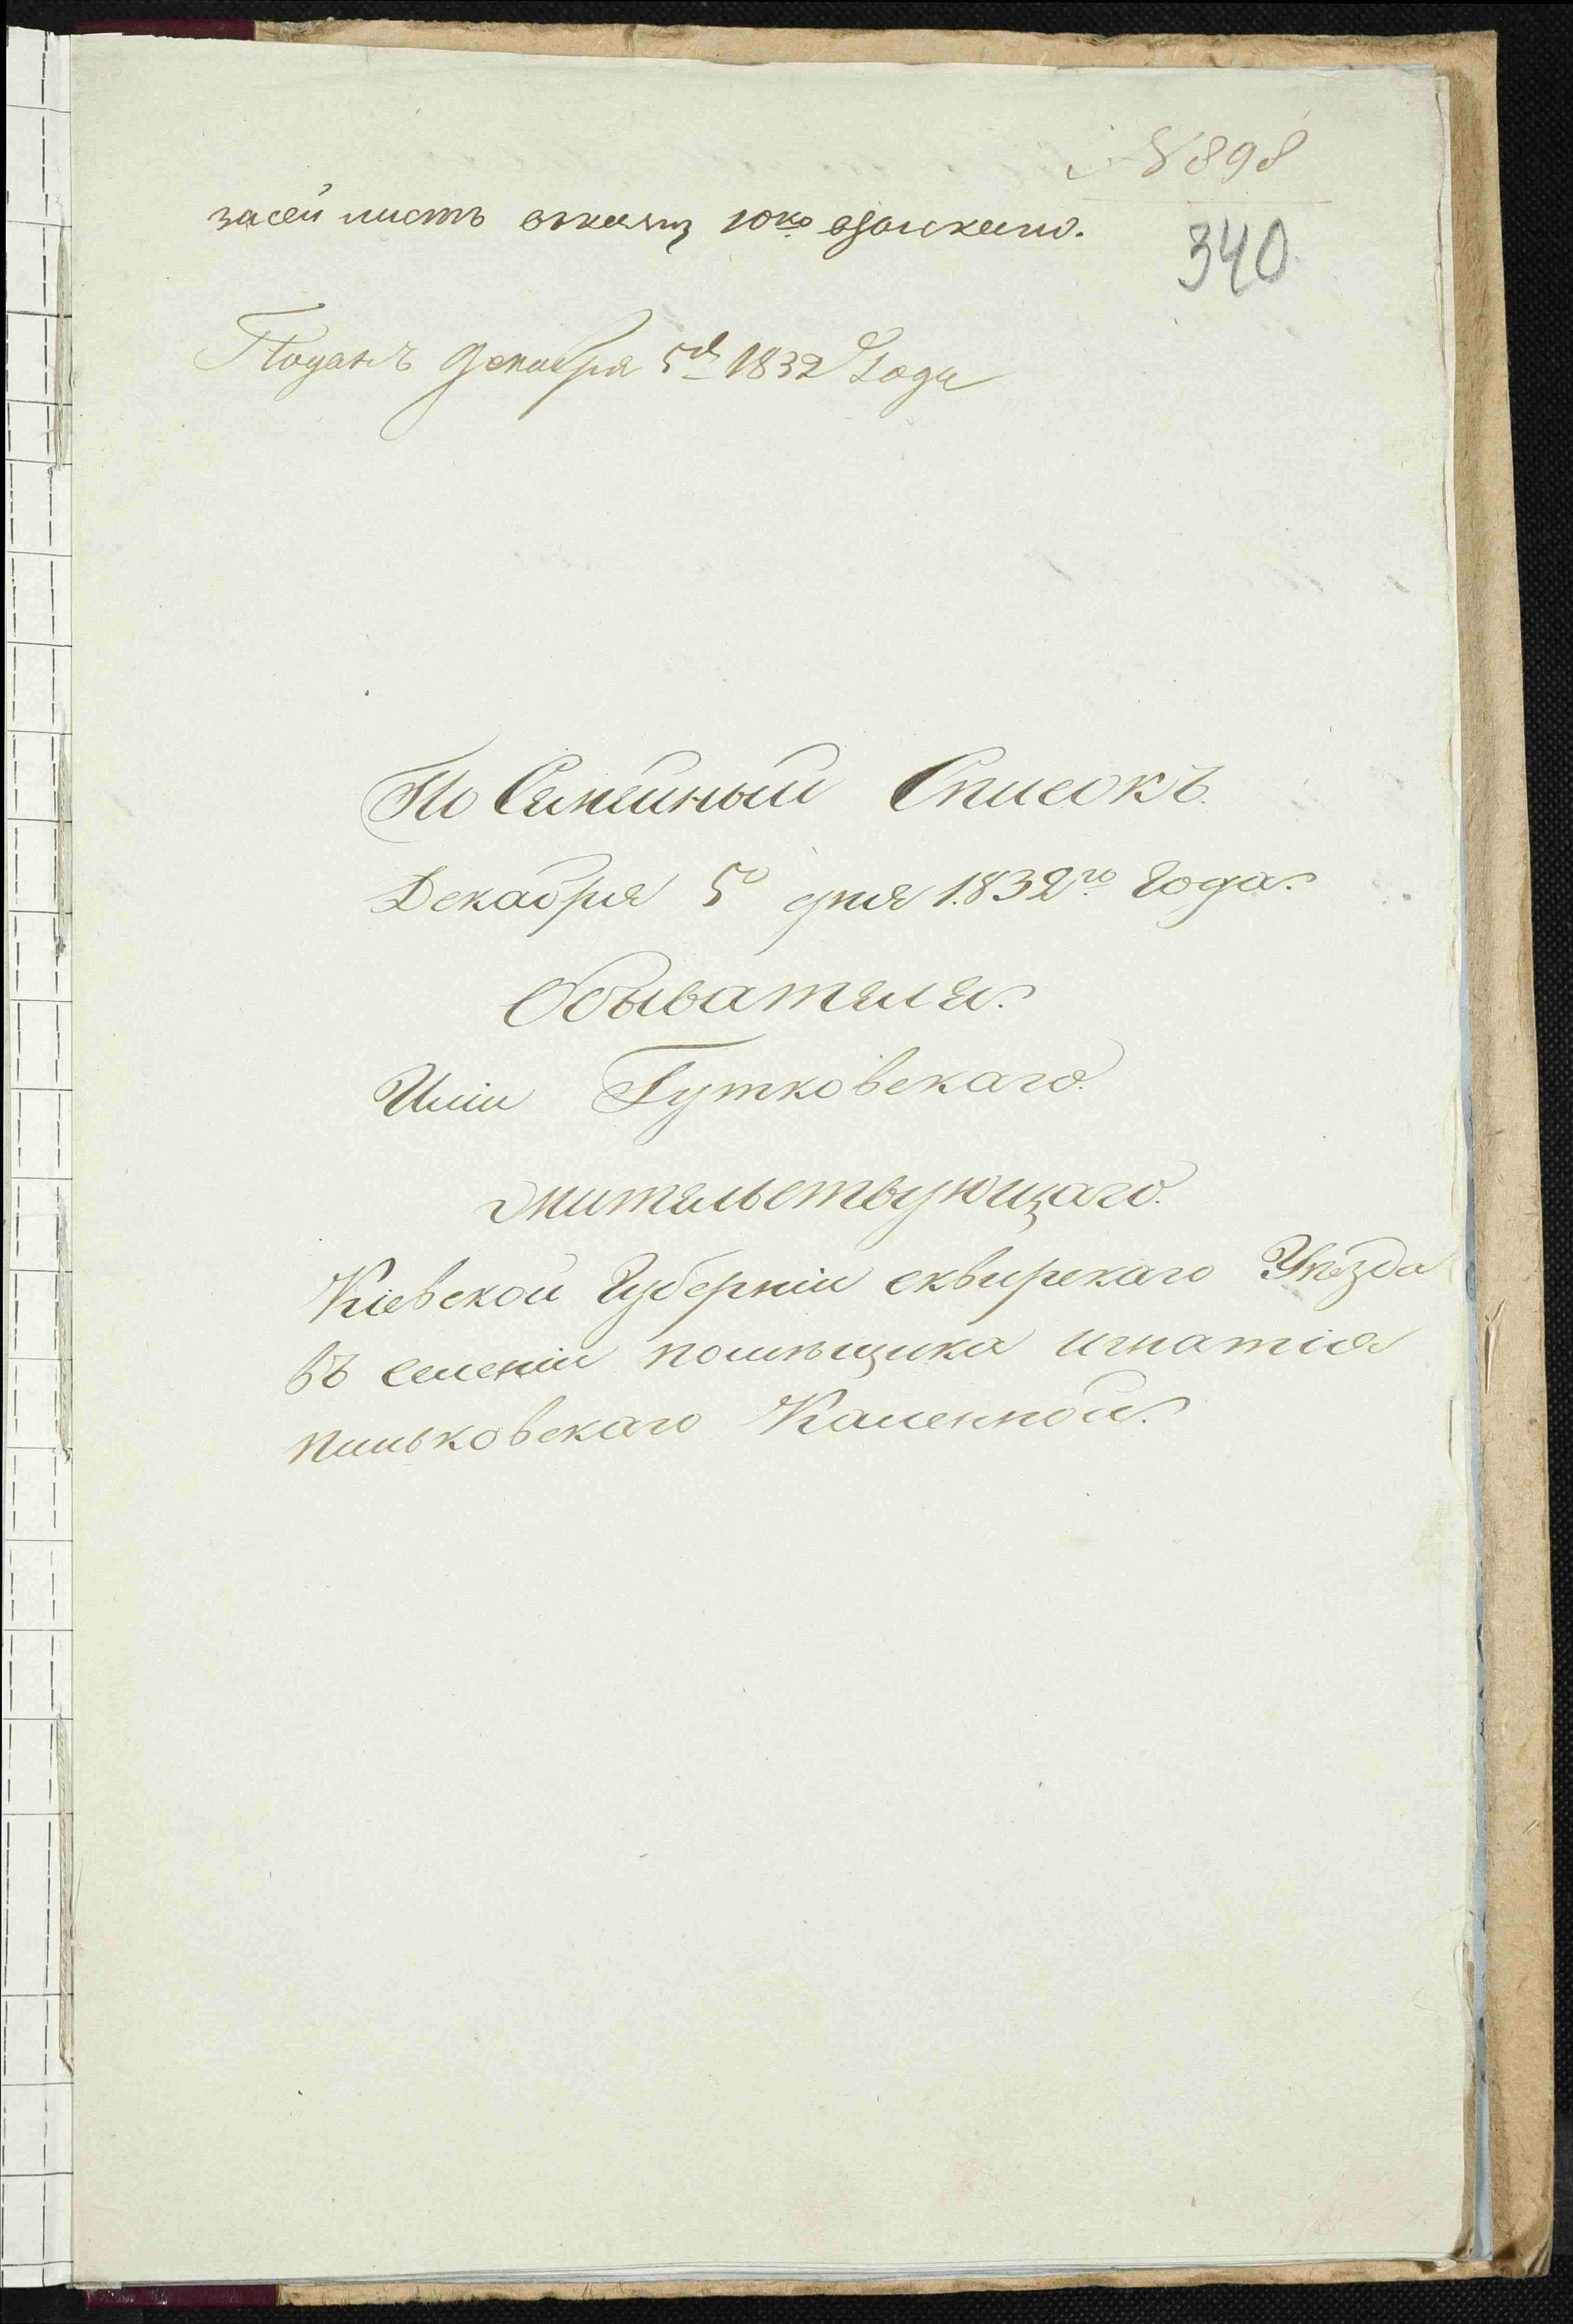 № 898
за сей листъ 10 ко взыскано.
340
Поданъ Декабря 5д 1832 Года
По Семейный Списокъ.
Декабря 5о дня 1832го Года.
Обывателя.
Илии Гутковскаго.
жительствующаго.
Киевской Губернии сквирскаго Уѣзда
въ селении помѣщика игнатія
пиньковскаго Каменной.